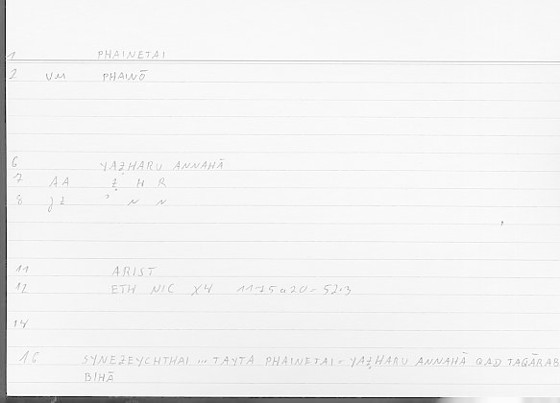 1 PHAINETAI
2 VM PHAINŌ
6 YAẒHARU ANNAHĀ
7 AA Ẓ H R
8 ʾ N N
11 ARIST
12 ETH NIC X4 1175a20-523
14
16 SYNEZEYCHTHAI ... TAYTA PHAINETAI - YAẒHARU ANNAHĀ QAD TAGĀRAB
BIHĀ